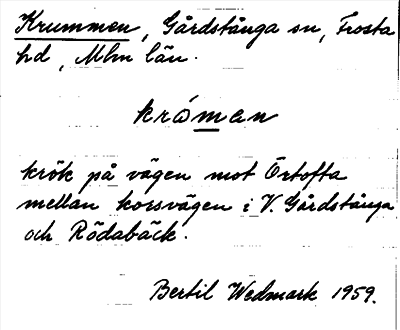 Krummen, Gårdstånga sn, Frosta
hd, Mlm län.
kråman
krök på vägen mot Örtofta
mellan korsvägen i V. Gårdstånga
och Rödabäck.
Bertil Wedmark 1959.